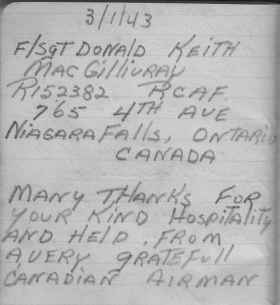 3/1/43
F/SGT DONALD KEITH
MacGillivray
R152382 RCAF.
765 4TH AVE
NIAGARA FALLS, ONTARIO
CANADA
MANY THANKS FOR
YOUR KIND HOSPITALITY
AND HELP, FROM
A VERY GRATEFULL
CANADIAN AIRMAN